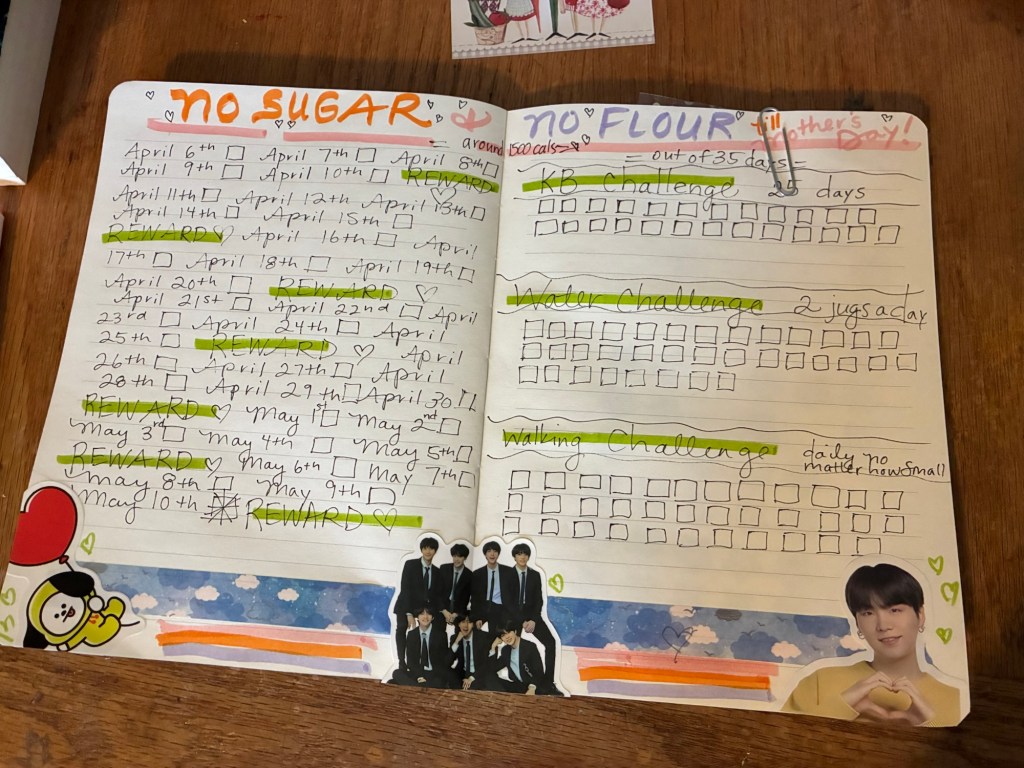 no SUGAR &
= around
April 6th □ April 7th □ April 8th □
April 9th □ April 10th □ REWARD ♡
April 11th □ April 12th April 13th □
April 14th □ April 15th □
REWARD ♡ April 16th □ April
17th □ April 18th □ April 19th □
April 20th □ REWARD ♡
April 21st □ April 22nd □ April
23rd □ April 24th □ April
25th □ REWARD ♡ April
26th □ April 27th □ April
28th □ April 29th □ April 30th
REWARD ♡ May 1st □ May 2nd □
May 3rd □ May 4th □ May 5th □
REWARD ♡ May 6th □ May 7th □
May 8th □ May 9th □
May 10th REWARD ♡
no FLOUR till
mother's
DAY!
1500 cals
= out of 35 days =
KB Challenge 25 days
Water Challenge 2 jugs a day
Walking Challenge daily no
matter how small